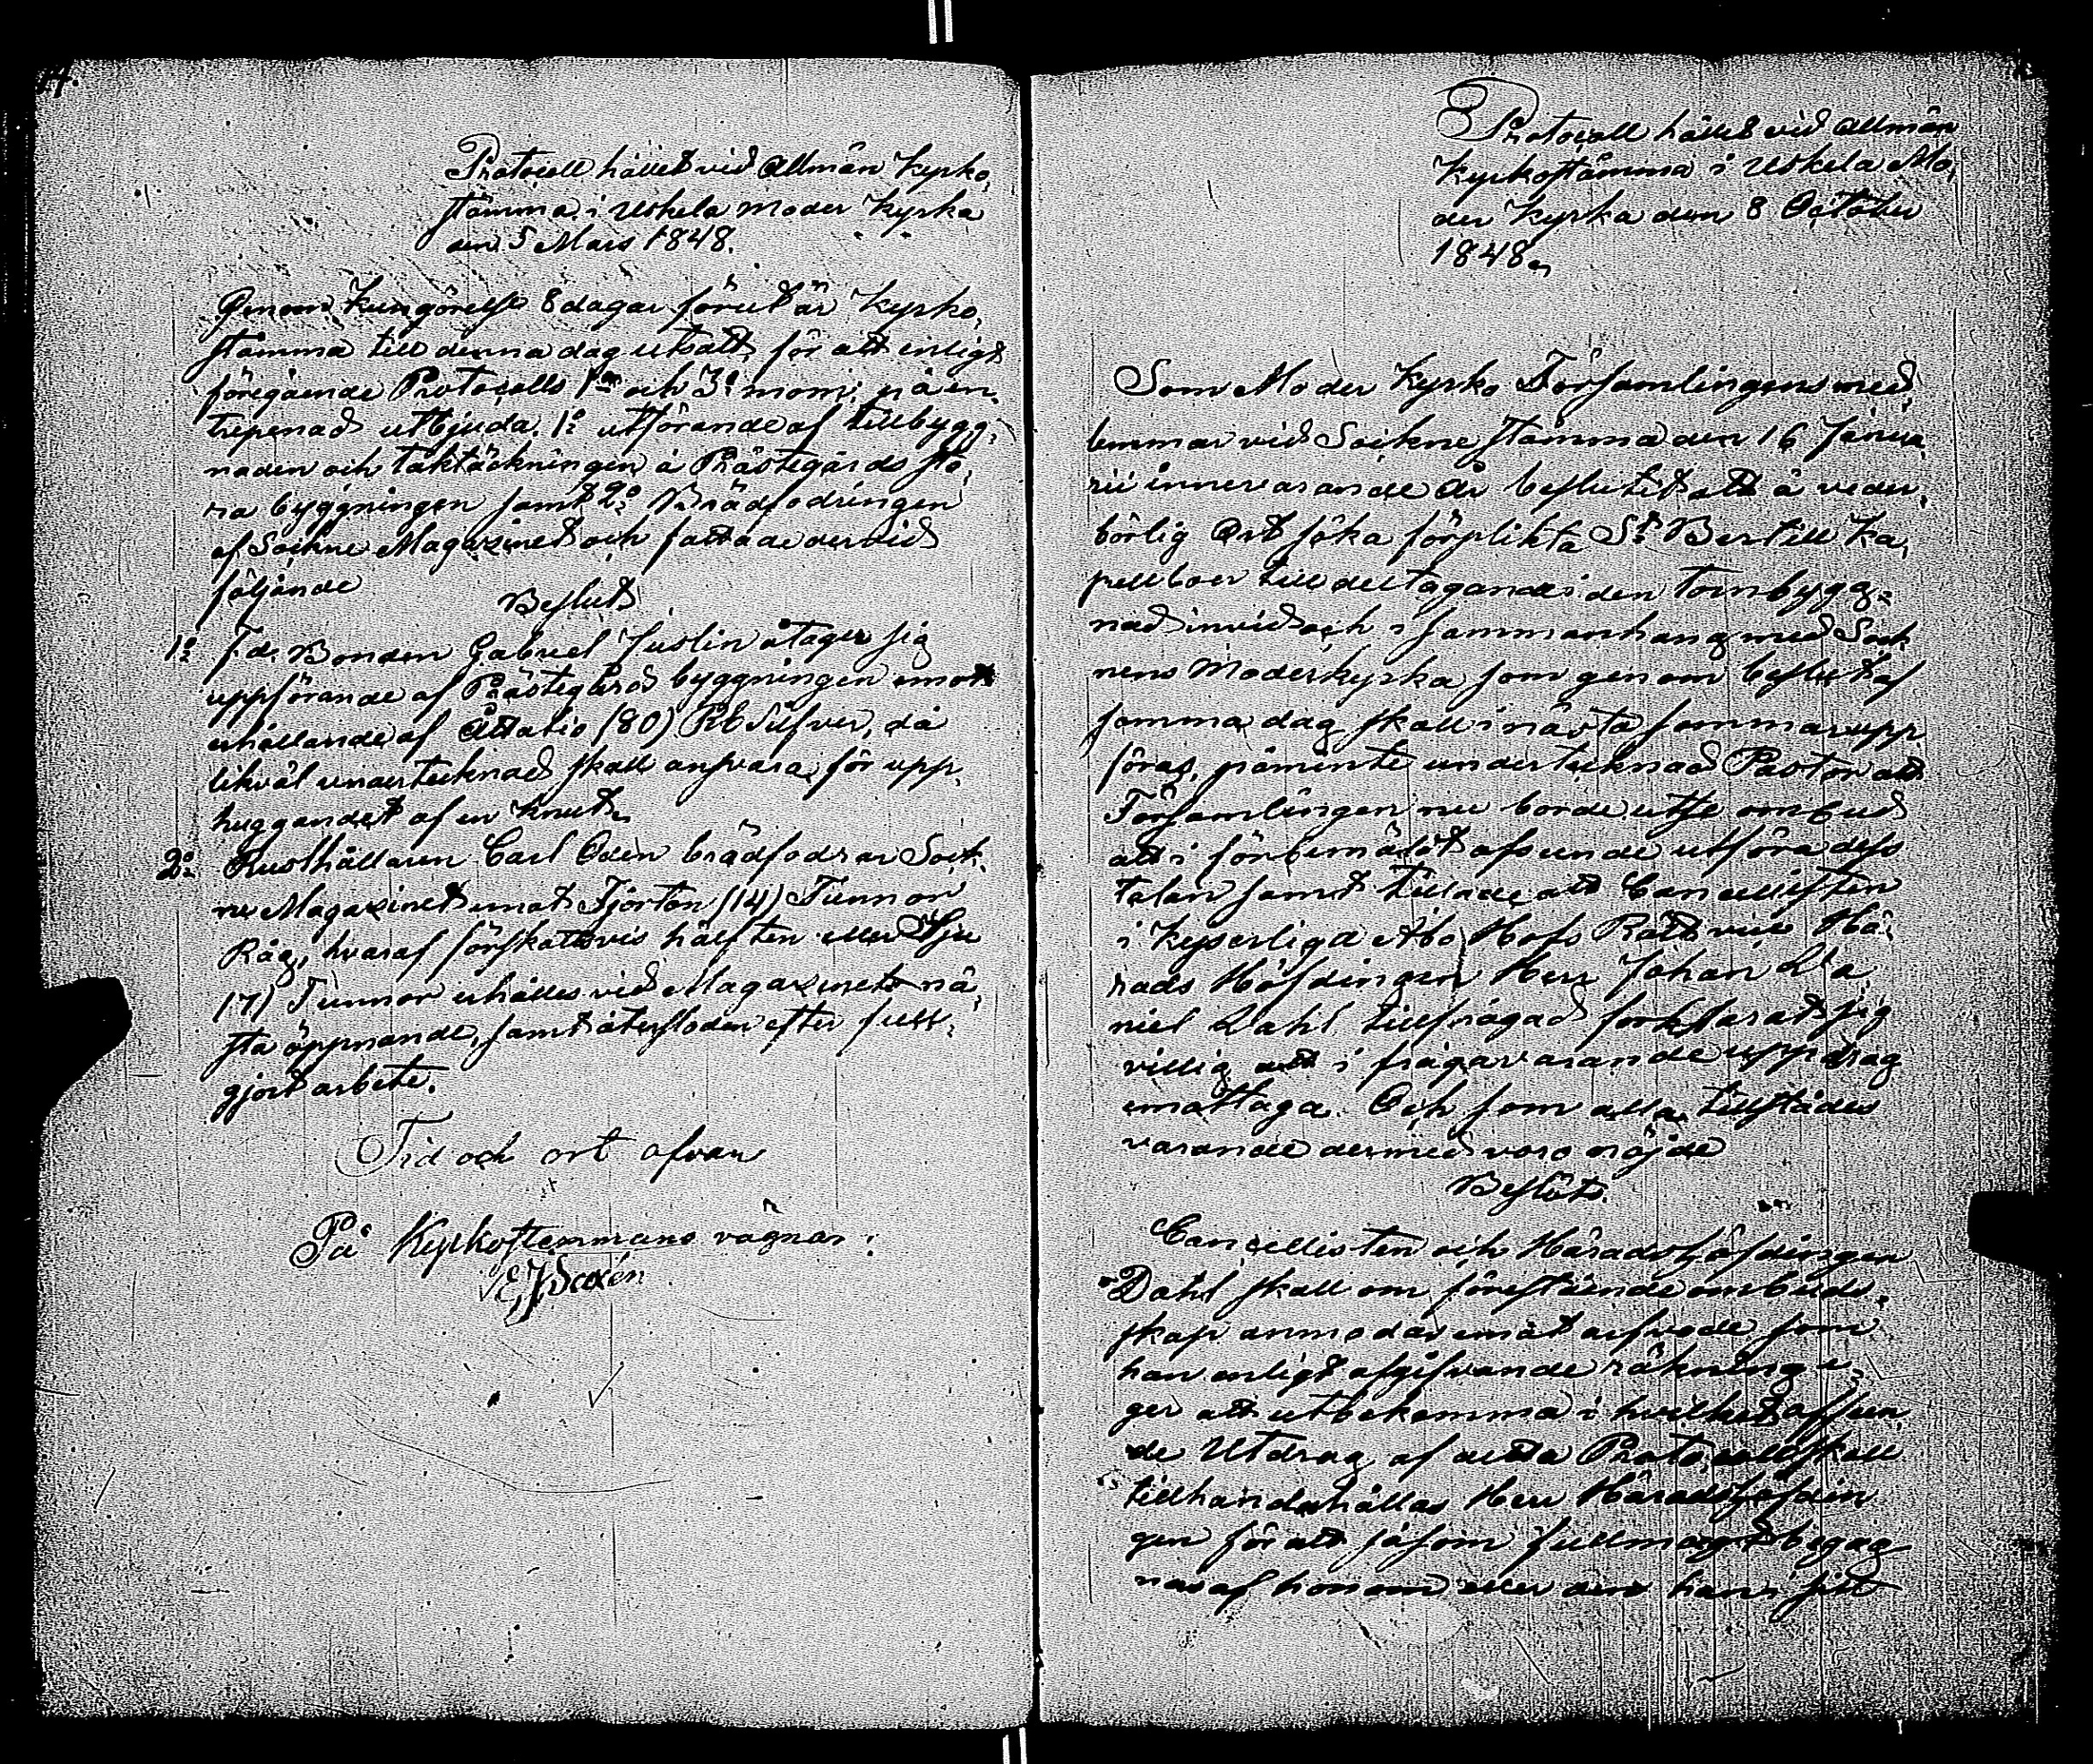 Protocoll hållet vid Allmän Kyrko,
stämma i Uskela Moder Kyrka
den 5 Mars 1848.
Genom Kungörelse 8 dagar förut är Kyrko,
stämma till denna dag utsatt, för att enligt
föregående Protocolls 1a och 3e mom: på en,
trepenad utbjuda. 1o utförande af tillbygg,
naden och taktäckningen å Prästegårds sto,
ra byggningen samt 2o Brädfodringen
af Sockne Magazinet och fattade dervid
följande
Beslut
1o f.d. Bonden Gabriel Juslin åtager sig
uppförande af Prästegårds byggningen emot
erhållande af Åttatio (80) Rb Silfver, då
likväl undertecknad skall ansvara för upp,
huggandet af en knut.
2o Rusthållaren Carl Oden brädfodrar Sock,
ne Magazinet emot Fjorton (14) Tunnor
Råg, hvaraf förskottsvis hälften eller Sju
(7) Tunnor erhålles vid Magazinets nä,
sta öppnande, samt återstoden efter full,
gjort arbete.
Tid och ort ofvan
På Kyrkostemmans vägnar:
E J Saxén
Protocoll hållet vid Allmän
Kyrkostämma i Uskela Mo,
der Kyrka den 8 October
1848.
Som Moder Kyrko Församlingens med,
lemmar vid Sockne stämma den 16 Janua,
rii innevarande År beslutit att å veder,
börlig Ort söka förplikta St Bertill Ka,
pellboer till deltagande i den Tornbygg,
nad invid och i sammanhang med Sock
nens Moderkyrka som genom beslut af
samma dag skall i nästa sommar upp
föras, påminte undertecknad Pastor att
Församlingen nu borde utse ombud
att i förbemält afseende utföra dess
talan samt tillade att Cancellisten
i Kejserliga Åbo Hofs Rätt vice Hä,
rads Höfdingen Herr Johan Da,
niel Dahl tillfrågad förklarat sig
villig att i frågavarande uppdrag
emottaga. Och som alla tillstädes
varande dermed voro nöjde
Beslöts.
Cancellisten och Häradshöfdingen
Dahl skall om förestående ombuds,
skap anmodas emot arfvode som
han enligt afgifvande räkning e,
ger att utbekomma i hvilket afseen
de Utdrag af detta Protocoll skall
tillhandahållas Herr Häradshöfdin
gen för att såsom fullmagt begag
nas af honom eller den han i sitt